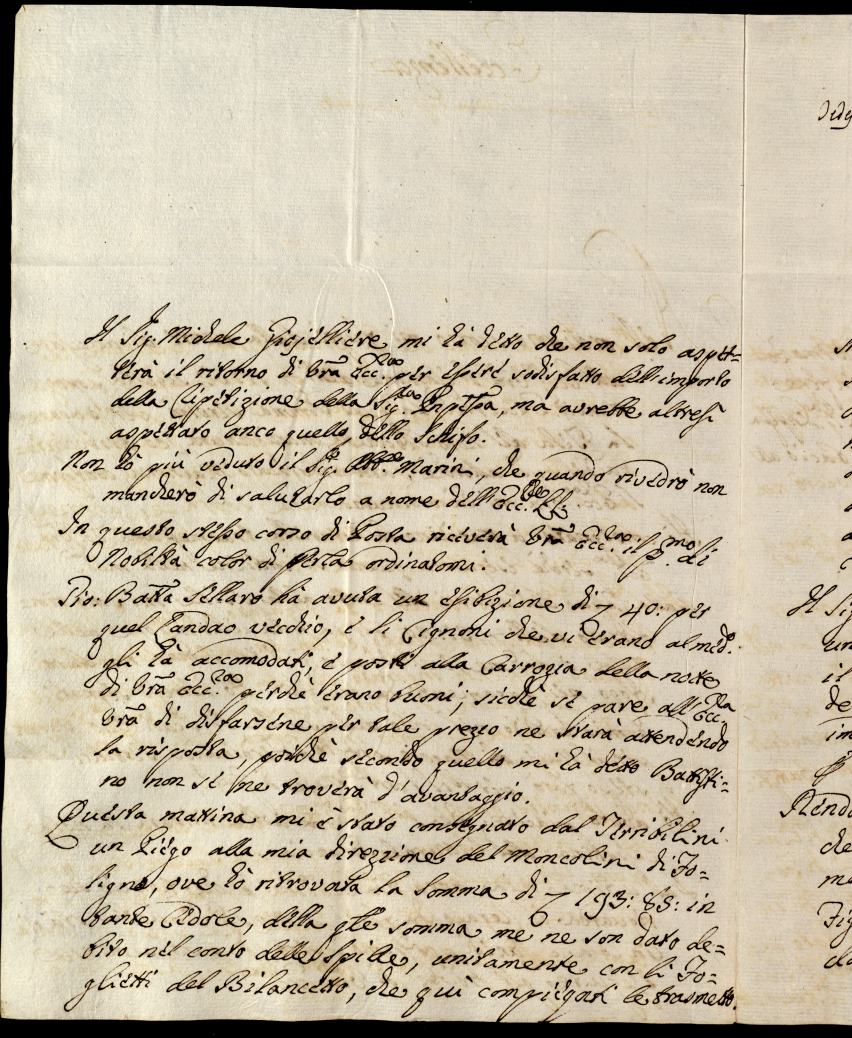 Il Sig. Michele Giojelliere mi hà detto che non solo aspet=
terà il ritorno di Vrã Ecc. per essere sodisfatto dell'importo
della Ripetizione della Sig., ma avrebbe altresì
aspettato anco quello dello Schifo.
Non hò più veduto il Sig. Abb. Marini, che quando rivedrò non
mancherò di salutarlo a nome dell'Ecc.
In questo stesso corso di Posta riceverà Vrã Ecc. il p.mo di
Nobiltà color di Perla ordinatomi.
Gio: Batta Sellaro hà avuta un esibizione di 40: per
quel Landao vecchio, e li Cignoni che vi erano al med.
gli hà accomodati, e posti alla Carrozza della notte
di Vrã Ecc. perchè erano buoni; sicchè se pare all'Ecc.
Vrã di disfarsene per tale prezzo ne starà attendendo
la risposta, poichè secondo quello mi hà detto Battisti=
no non se ne troverà d'avantaggio.
Questa mattina mi è stato consegnato dal Terribilini
un Piego alla mia direzzione del Moncolini di Fo=
ligno, ove hò ritrovata la Somma di 193: 85: in
tante Cedole, della qle somma me ne son dato de=
bito nel conto delle Spille, unitamente con li Fo=
glietti del Bilancetto, che quì compiegati le trasmetto.
Il Sig
un
il
de
im
Rendo
che
me
Fig